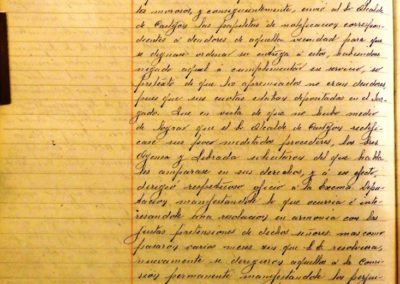 tes morosos, y consiguientemente, envió al Sr. Alcalde
de Castejón las papeletas de notificación correspon-
dientes á deudores de aquella vecindad para que
se dignase ordenar su entrega á estos, habiéndose
negado aquel á cumplimentar su servicio, so
pretexto de que los apremiados no eran deudores
pues que sus cuotas estaban depositadas en el Juz-
gado. Que en vista de que no hubo medio
de lograr que el Sr. Alcalde de Castejón rectifi-
case sus poco meditados procederes, los Sres.
y Labrada solicitaron del que habla
les amparase en sus derechos, y á su efecto,
dirigió respetuoso oficio á la Excma. Dipu-
tación, manifestándole lo que ocurría é inte-
resándole una resolución en armonía con las
justas pretensiones de dichos señores mas como
pasaron varios meses sin que S.E. resolviera,
nuevamente se dirigieron aquellos á la Comi-
sión permanente manifestándole los perjui-